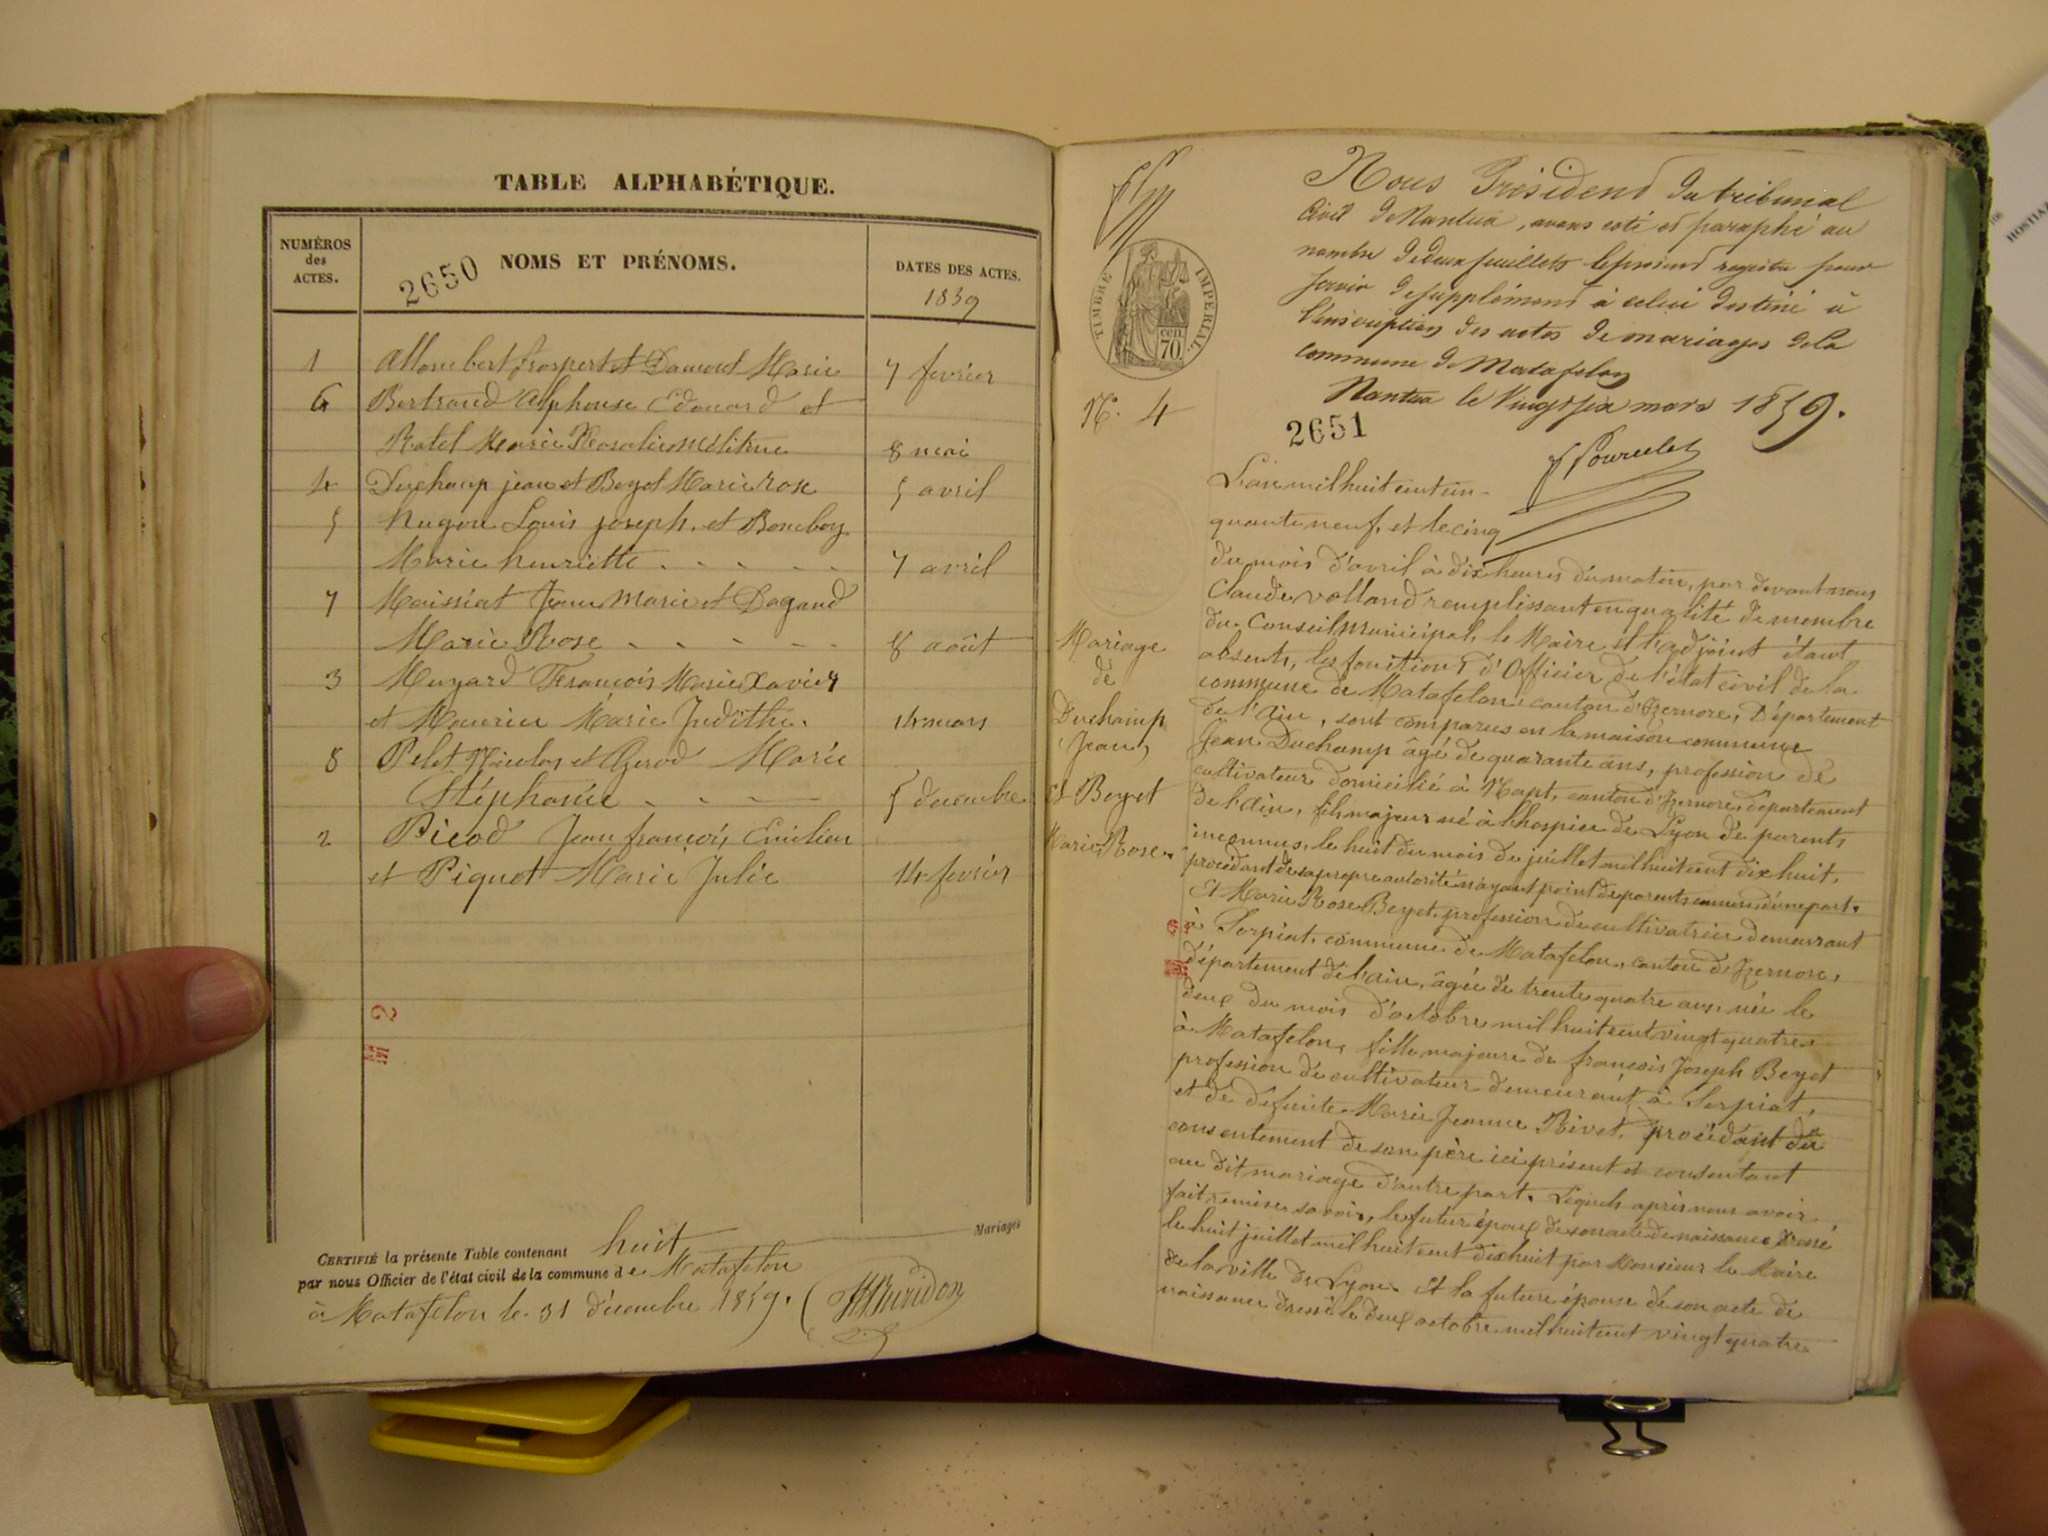 TABLE ALPHABÉTIQUE.
NUMÉROS
des
ACTES.
2650 NOMS ET PRÉNOMS.
DATES DES ACTES.
1859
1 Allombert prosper et Marie 7 fevrier
6 Bertrand Alphonse Edouard et
Ratel Marie Rosalie 8 mai
4 Duchamp jean et Beyet Marie rose 5 avril
5 Nugon Louis joseph. et Bonchoy
Marie henriette - - - - - 7 avril
7 Maissiat Jean Marie et Dagand
Marie Rose - - - - - 8 août
3 Muzard François Marie Xavier
et Maurier Marie Judithe. 14 mars
8 Pelet Nicolas et Gerod Marie
Stéphanie - - - - 5 decembre
2 Picod Jean françois Emilien
et Piquet Marie Julie 14 fevrier
M 2
CERTIFIÉ la présente Table contenant huit Mariages
par nous Officier de l'état civil de la commune de Matafelon
à Matafelon le 31 décembre 1859.
Nous Président du tribunal
Civil de Nantua, avons coté et paraphé au
nombre de deux feuillets le présent registre pour
servir de supplément à celui destiné à
l'inscription des actes de mariages de la
commune de Matafelon
Nantua le Vingt six mars 1859.
TIMBRE IMPÉRIAL
cen.
70.
N°. 4
2651
L'an mil huit cent cin-
quante neuf, et le cinq
du mois d'avril à dix heures du matin, par devant nous
Claude volland remplissant en qualité de membre
du Conseil Municipal, le Maire et l'adjoint étant
absents, les fonctions d'Officier de l'état civil de la
commune de Matafelon, canton d'Izernore, Département
de l'Ain, sont comparus en la maison commune
Jean Duchamp âgé de quarante ans, profession de
cultivateur domicilié à Napt, canton d'Izernore, département
de l'ain, fils majeur né à l'hospice de Lyon de parents
inconnus, le huit du mois de juillet mil huit cent dix huit,
procédant de sa propre autorité n'ayant point de parents connus, d'une part.
Et Marie Rose Beyet, profession de cultivatrice demeurant
à Serpiat, commune de Matafelon, canton d'Izernore,
département de l'ain, âgée de trente quatre ans, née le
deux du mois d'octobre mil huit cent vingt quatre
à Matafelon, fille majeure de françois Joseph Beyet
profession de cultivateur demeurant à Serpiat,
et de defunte Marie Jeanne Rivet, procédant du
consentement de son père ici présent et consentant
au dit mariage d'autre part. Lesquels après nous avoir
fait remise savoir, le futur époux de son acte de naissance dressé
le huit juillet mil huit cent dix huit par Monsieur le Maire
de la ville de Lyon. Et la future épouse de son acte de
naissance dressé le deux octobre mil huit cent vingt quatre
Mariage
de
Duchamp
Jean,
Et Beyet
Marie Rose.